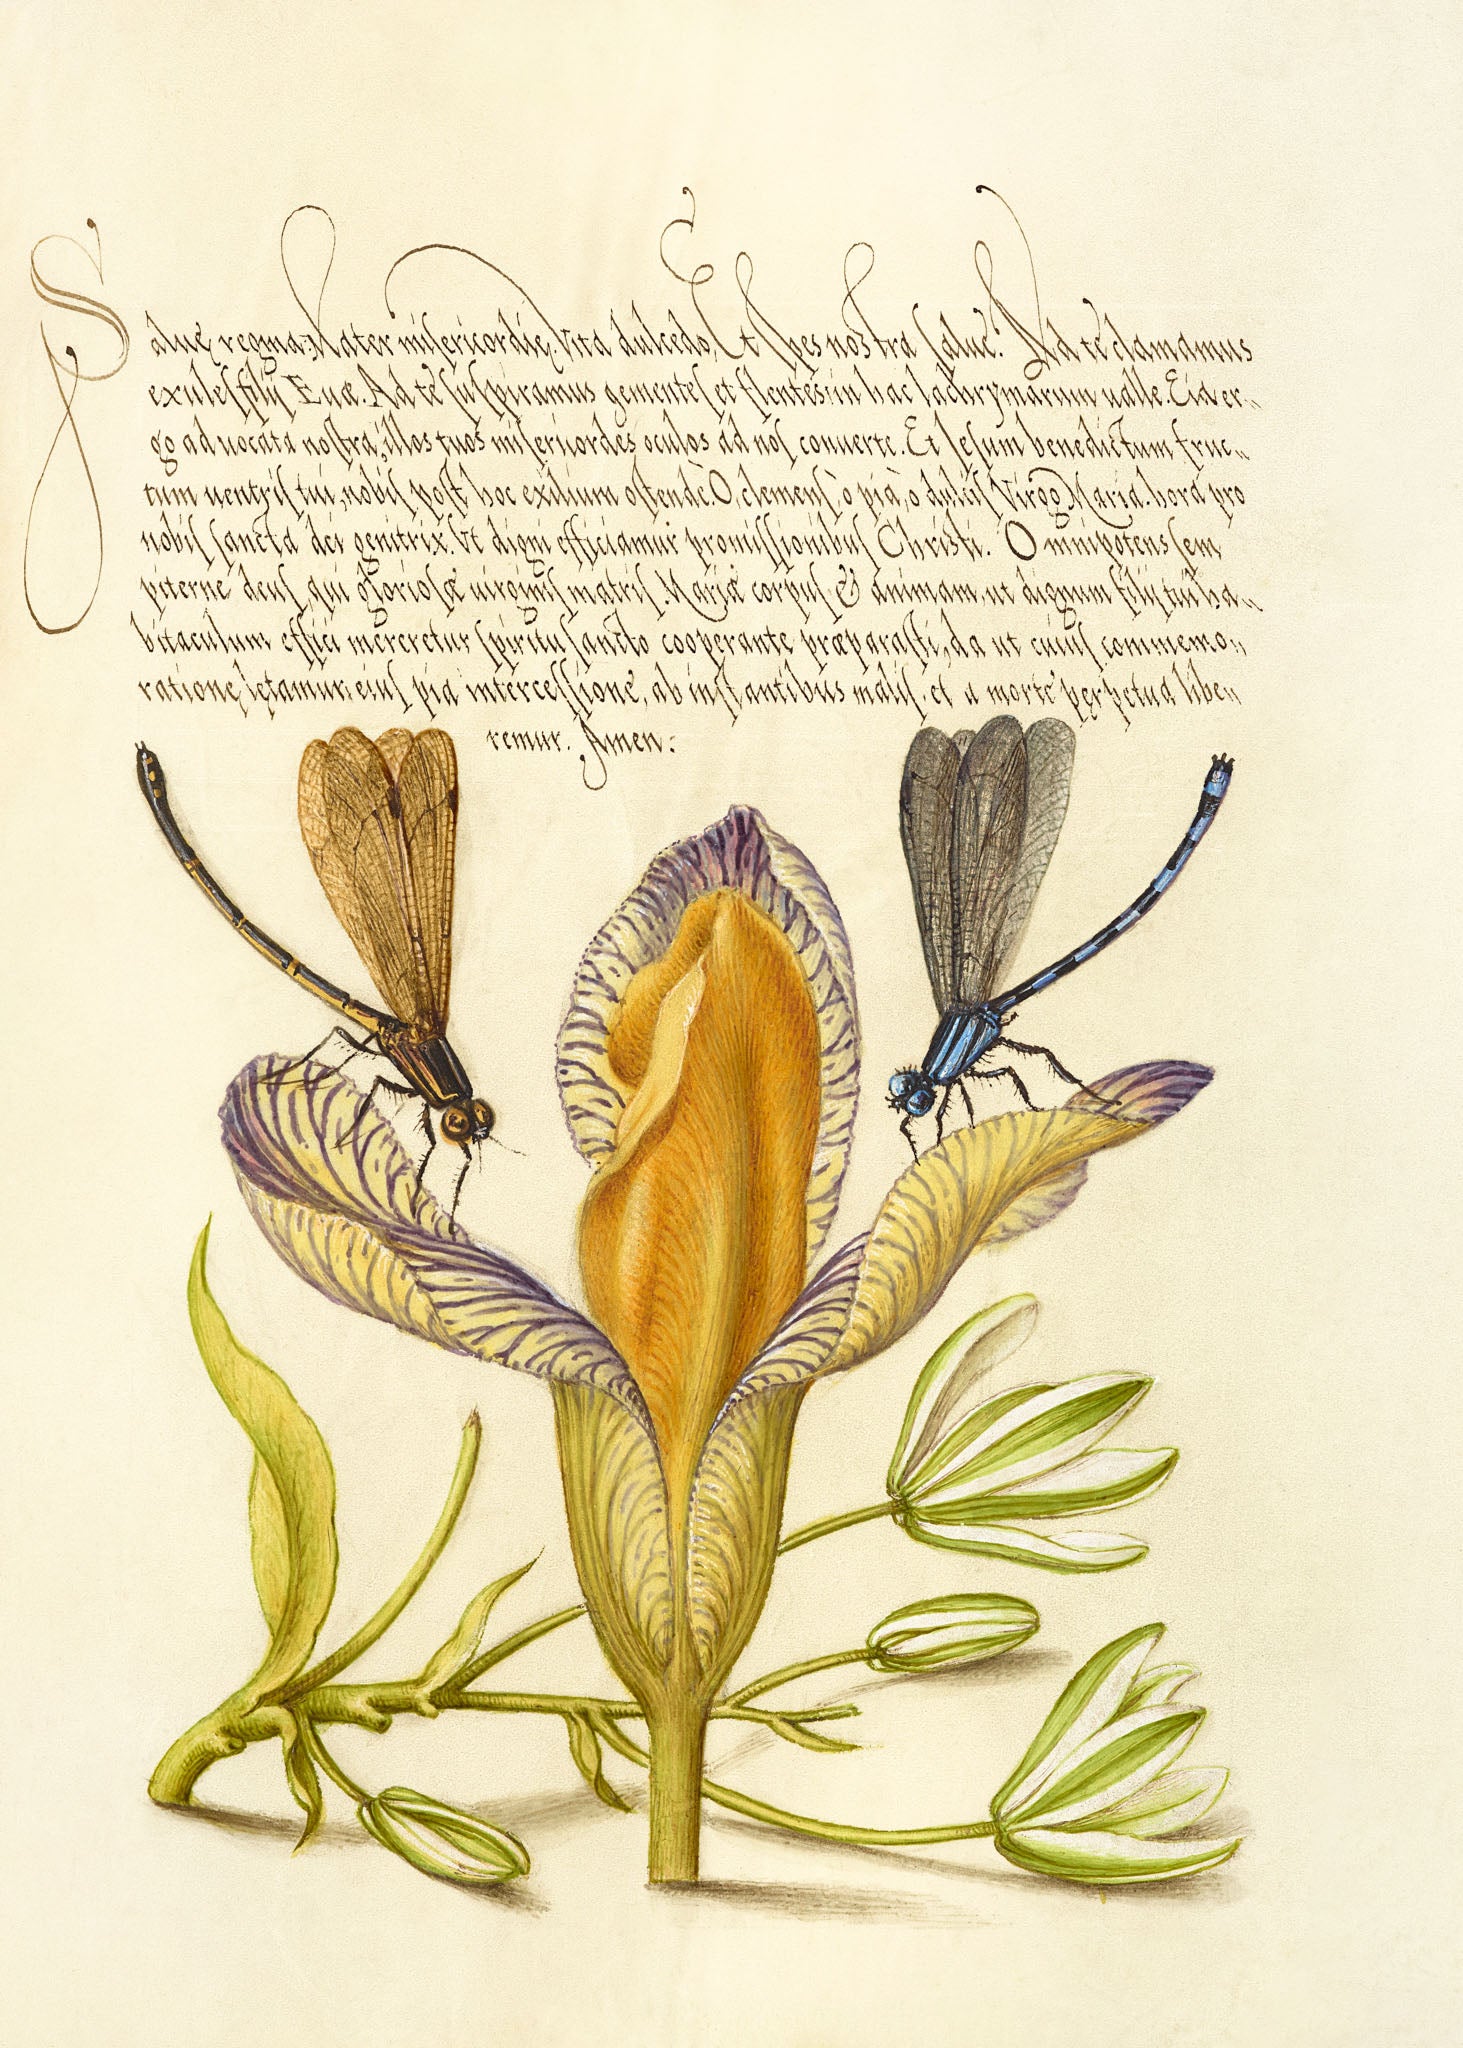 Salue regina. Mater misericordie. Vita dulcedo, Et spes nostra salue. Ad te clamamus
exules filij Euæ. Ad te suspiramus gementes et flentes in hac lachrymarum ualle. Eia er„
go aduocata nostra, illos tuos misericordes oculos ad nos conuerte. Et Iesum benedictum fruc„
tum uentris tui, nobis post hoc exilium ostende. O clemens, o pia, o dulcis Virgo Maria. hora pro
nobis sancta dei genitrix. Vt digni efficiamur promissionibus Christi. Omnipotens sem
piterne deus, qui gloriosæ uirginis matris Mariæ corpus & animam, ut dignum filij tui ha„
bitaculum effici mereretur spiritu sancto cooperante præparasti, da ut cuius commemo„
ratione letamur, eius pia intercessione, ab instantibus malis, et a morte perpetua libe„
remur. Amen: